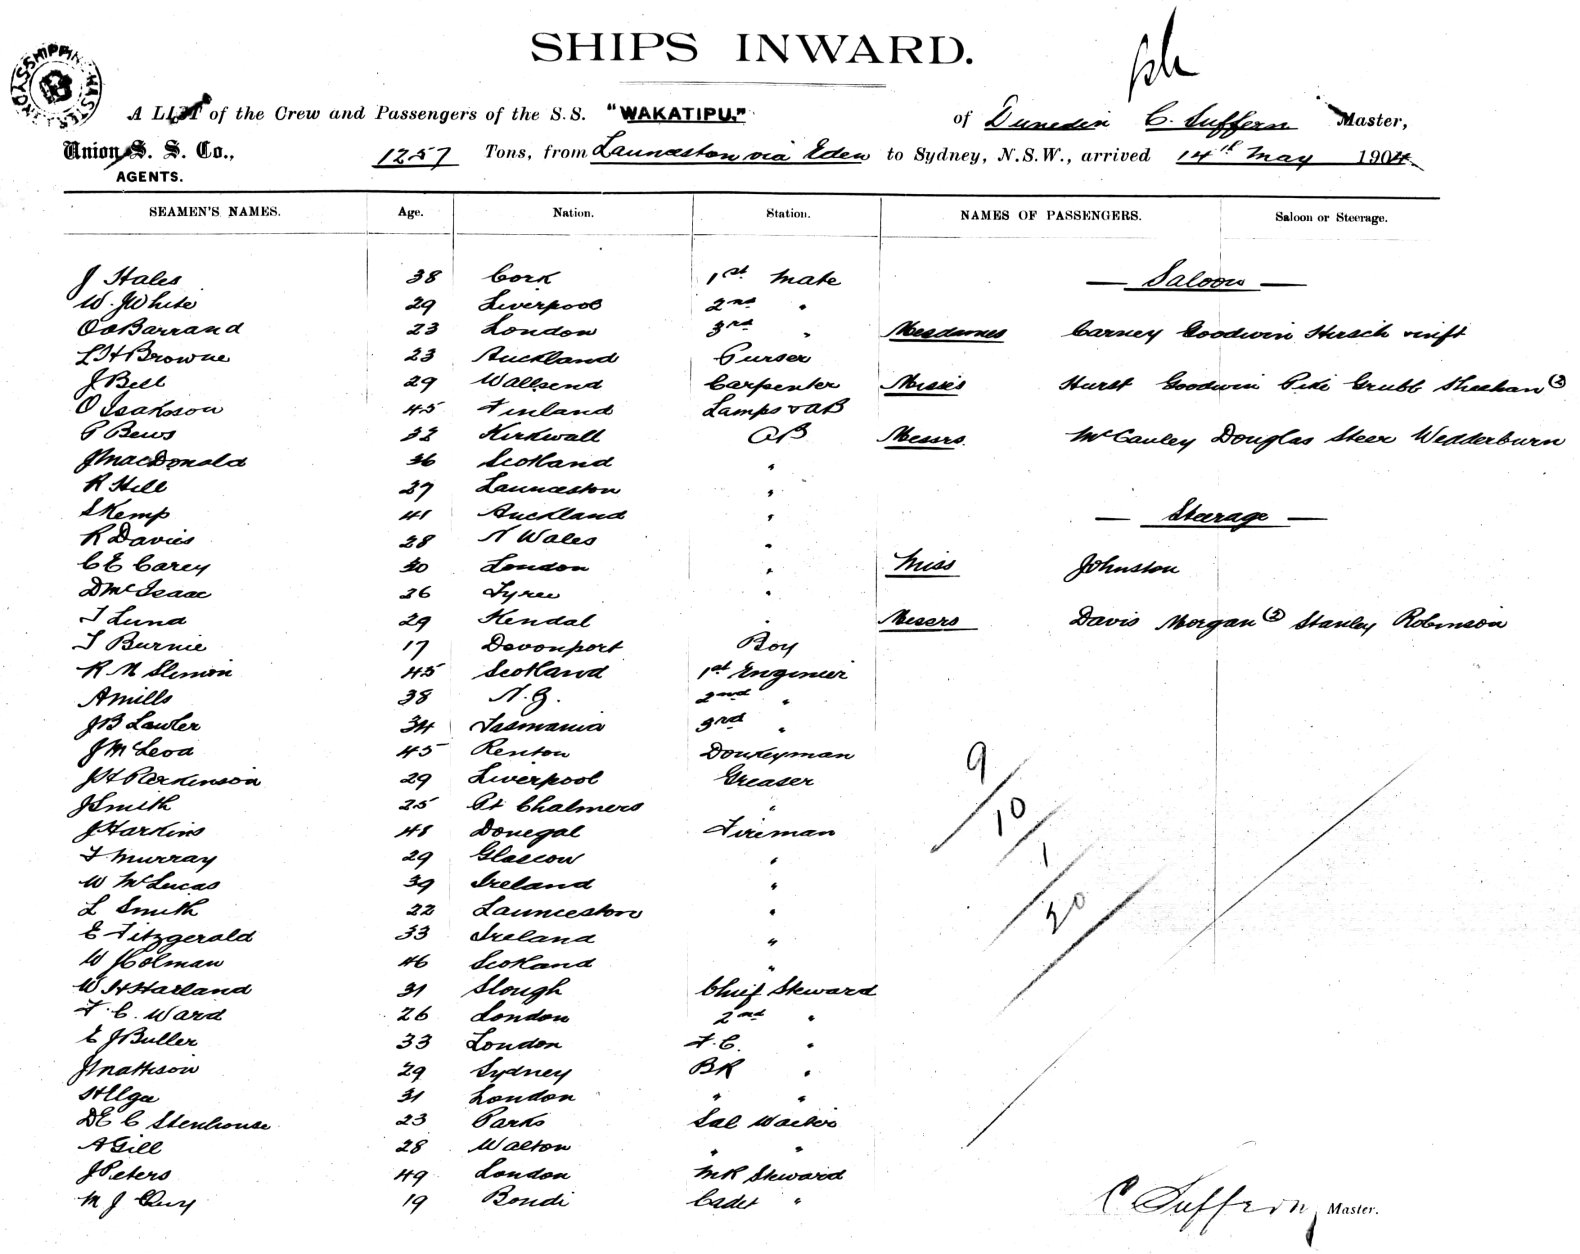 SHIPS INWARD.
A LIST of the Crew and Passengers of the S.S. "WAKATIPU." of Dunedin C. Suffern Master,
Union S. S. Co., 1257 Tons, from Launceston via Eden to Sydney, N.S.W., arrived 14th May 1904
AGENTS.
SEAMEN'S NAMES. Age. Nation. Station. NAMES OF PASSENGERS. Saloon or Steerage.
J Hales 38 Cork 1st Mate — Saloon —
W. J White 29 Liverpool 2nd "
O O Barrand 23 London 3rd " Mesdames Carney Goodwin Hirsch Swift
L H Browne 23 Auckland Purser
J Bell 29 Wallsend Carpenter Misses Hurst Goodwin Piki Grubb Sheehan (2)
O Isakson 45 Finland Lamps & AB
P Bews 32 Kirkwall AB Messrs McCauley Douglas Steer Wedderburn
J MacDonald 36 Scotland "
R Hill 27 Launceston "
S Kemp 41 Auckland " — Steerage —
R Davies 28 N Wales "
C E Carey 30 London " Miss Johnston
D McIsaac 26 Tyree "
T Lund 29 Kendal " Messrs Davis Morgan (2) Stanley Robinson
T Burnie 17 Devonport Boy
R M Slimon 45 Scotland 1st Engineer
A Mills 38 N.Z. 2nd "
J B Lawler 34 Tasmania 3rd "
J McLeod 45 Renton Donkeyman
J H Perkinson 29 Liverpool Greaser
J Smith 25 Pt Chalmers "
J Harkins 48 Donegal Fireman
F Murray 29 Glascow "
W McLucas 39 Ireland "
L Smith 22 Launceston "
E Fitzgerald 33 Ireland "
W Holman 46 Scotland "
W H Harland 31 Slough Chief Steward
F. C. Ward 26 London 2nd "
E J Buller 33 London F.C. "
J Mattison 29 Sydney BR "
H Elga 31 London " "
D E C Stenhouse 23 Parks Sal Waiter
A Gill 28 Walton " "
J Peters 49 London MR Steward
M J Guy 19 Bondi Cadet "
9/10/1/20
C Suffern, Master.